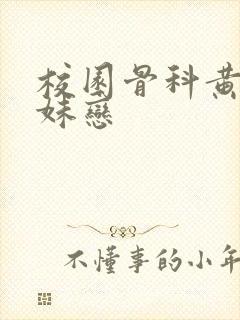 校園骨科黃
妹戀
不懂事的小年